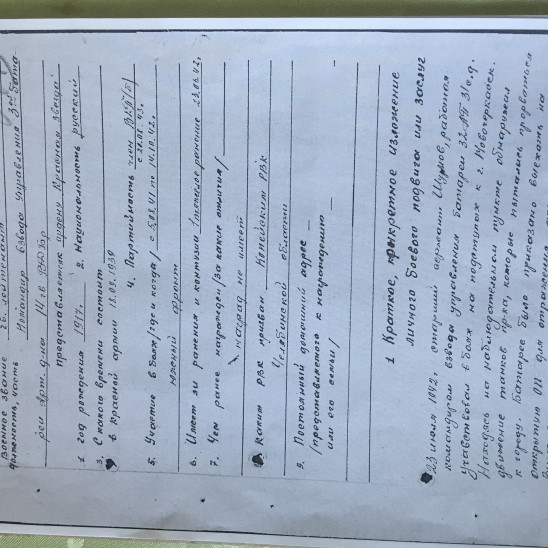 Военное звание гв. лейтенант
должность, часть командир взвода управления 3го бата-
реи арт. д-на 14 гв
Представляется к ордену Красная Звезда
1. год рождения 1917г. 2. Национальность русский
3. С какого времени состоит в Красной армии 18.09.1939
4. Партийность член ВКП(б) с 43г.
5. Участие в боях /где и когда/ с 5.03.42 по 14.10.42.
южный фронт
6. Имеет ли ранения и контузии 1тяжелое ранение 23.03.42.
7. Чем ранее награжден /за какие отличия/
наград не имеет
Каким РВК призван Копейским РВК
Челябинской области
9. Постоянный домашний адрес —
/представляемого к награждению —
или его семьи/ —
1 Краткое, конкретное изложение
личного боевого подвига или заслуг
23 июля 1942г. старший сержант Шумов, работая
командиром взвода управления батареи 32 АП 31 с.д.
Участвовал в боях на подступах к г. Новочеркасск.
Находясь на наблюдательном пункте обнаружил
движение танков врага, которые пытались прорваться
к городу. Батарее было приказано выехать на
открытую ОП для отражения